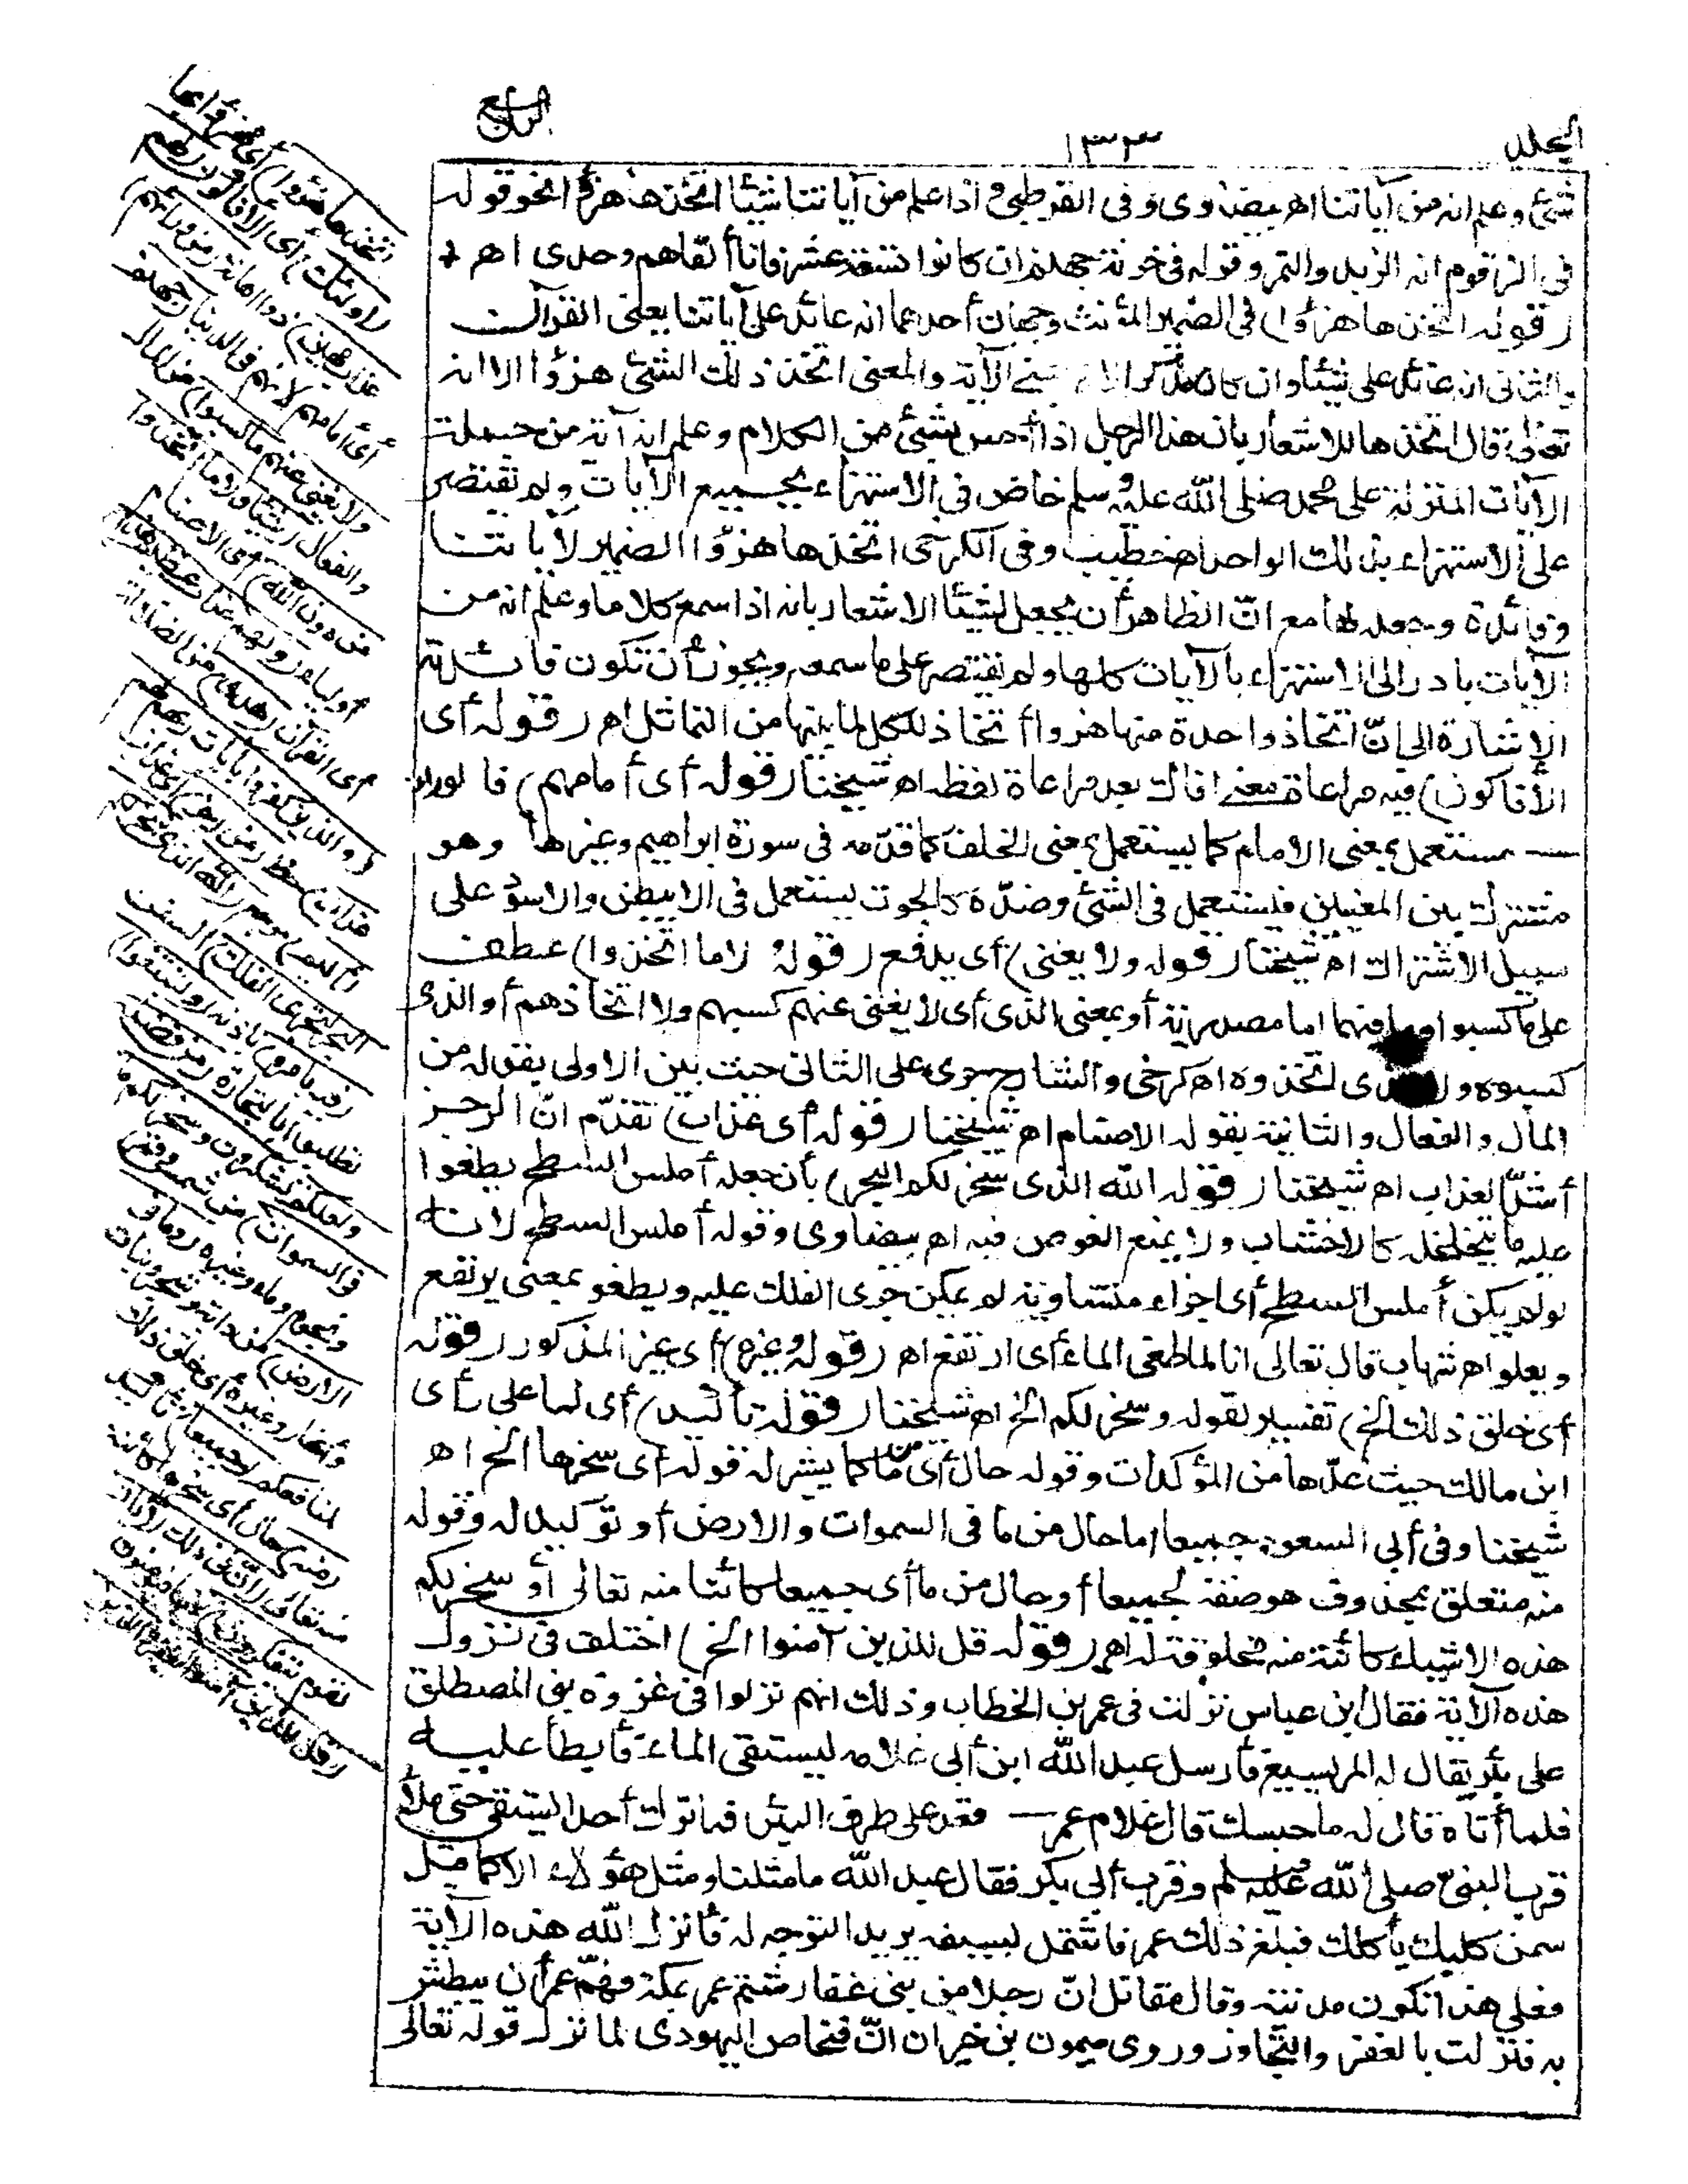 المجلد
١٣٣
الرابع
شئ وعلم انه من آياتنا اهـ بيضاوى وفى القرطبى واذا علم من آياتنا شيئا اتخذها هزؤا نحو قوله
فى الزقوم انه الزبد والتمر وقوله فى خزنة جهنم ان كانوا تسعة عشر فانا ألقاهم وحدى اهـ
(قوله اتخذها هزؤا) فى الضمير المؤنث وجهان أحدهما انه عائد على آياتنا يعنى القرآن
والثانى انه عائد على شيئا وان كان مذكرا لانه بمعنى الآية والمعنى اتخذ ذلك الشئ هزؤا الا انه
تعالى قال اتخذها للاشعار بان هذا الرجل اذا أحس بشئ من الكلام وعلم انه آية من جملة
الآيات المنزلة على محمد صلى الله عليه وسلم خاض فى الاستهزاء بجميع الآيات ولم يقتصر
على الاستهزاء بذلك الواحد اهـ خطيب وفى الكرخى اتخذها هزؤا الضمير لآياتنا
وفائدة وجعله لها مع انّ الظاهر أن يجعل لشيئا الاشعار بانه اذا سمع كلاما وعلم انه من
الآيات بادر الى الاستهزاء بالآيات كلها ولم يقتصر على ما سمعه ويجوز أن تكون فائدته
الاشارة الى انّ اتخاذ واحدة منها هزوا أتخاذ لكل لما بينها من التماثل اهـ (قوله أى
الأفاكون) فيه مراعاة معنى افاك بعد مراعاة لفظه اهـ شيخنا (قوله أى أمامهم) فالوراء
مستعمل بمعنى الامام كما يستعمل بمعنى الخلف كما قدّمه فى سورة ابراهيم وغيرها وهو
مشترك بين المعنيين فيستعمل فى الشئ وضدّه كالجون يستعمل فى الابيض والاسود على
سبيل الاشتراك اهـ شيخنا (قوله ولا يغنى) أى يدفع (قوله لاما اتخذوا) عطف
على ما كسبوا وما فيهما اما مصدرية أو بمعنى الذى أى لا يغنى عنهم كسبهم ولا اتخاذهم أو الذى
كسبوه ولا الذى اتخذوه اهـ كرخى والشارح جرى على الثانى حيث بين الاولى بقوله من
المال والفعال والثانية بقوله الاصنام اهـ شيخنا (قوله أى عذاب) تقدّم انّ الرجز
أشدّ العذاب اهـ شيخنا (قوله الله الذى سخر لكم البحر) بأن جعله أملس السطح يطفوا
عليه ما يتخلخل كالاخشاب ولا يمنع الغوص فيه اهـ بيضاوى وقوله أملس السطح لانه
لو لم يكن أملس السطح أى اجزاء متساوية لم يمكن جرى الفلك عليه ويطفو بمعنى يرتفع
ويعلو اهـ شهاب قال تعالى انا لما طغى الماء أى ارتفع اهـ (قوله وغيره) أى غير المذكور (قوله
أى خلق ذلك الخ) تفسير لقوله وسخر لكم الخ اهـ شيخنا (قوله تأكيد) أى لما على رأى
ابن مالك حيث عدّها من المؤكدات وقوله حال أى من ما كما يشير له قوله أى سخرها الخ اهـ
شيخنا وفى أبى السعود جميعا اما حال من ما فى السموات والارض أو توكيد له وقوله
منه متعلق بمحذوف هو صفة لجميعا أو حال من ما أى جميعا كائنا منه تعالى أو سخر لكم
هذه الاشياء كائنة منه مخلوقة له اهـ (قوله قل للذين آمنوا الخ) اختلف فى نزول
هذه الآية فقال ابن عباس نزلت فى عمر بن الخطاب وذلك انهم نزلوا فى غزوة بنى المصطلق
على بئر يقال له المريسيع فأرسل عبد الله ابن أبى غلامه ليستقى الماء فأبطأ عليه
فلما أتاه قال له ما حبسك قال غلام عمر قعد على طرف البئر فما ترك أحدا ليستقى حتى ملأ
قرب النبى صلى الله عليه وسلم وقرب أبى بكر فقال عبد الله ما مثلنا ومثل هؤلاء الا كما قيل
سمن كلبك يأكلك فبلغ ذلك عمر فاشتمل بسيفه يريد التوجه له فأنزل الله هذه الآية
فعلى هذا تكون مدنية وقال مقاتل انّ رجلا من بنى غفار شتم عمر بمكة فهمّ عمر أن يبطش
به فنزلت بالعفو والتجاوز وروى ميمون بن خيران انّ فنحاص اليهودى لما نزل قوله تعالى
اتخذها هزؤا) أى مهزؤا بها
(اولئك) أى الافاكون (لهم
عذاب مهين) ذو اهانة (من ورائهم)
أى أمامهم لانهم فى الدنيا (جهنم
ولا يغنى عنهم ما كسبوا) من المال
والفعال (شيئا ولا ما اتخذوا
من دون الله) أى الاصنام
أولياء ولهم عذاب عظيم هذا)
أى القرآن (هدى) من الضلالة
(والذين كفروا بآيات ربهم لهم
عذاب) حظ (من رجز) أى عذاب
(أليم) موجع (الله الذى سخر لكم
البحر لتجرى الفلك) السفن
(فيه بامره) باذنه (ولتبتغوا)
تطلبوا بالتجارة (من فضله
ولعلكم تشكرون وسخر لكم ما
فى السموات) من شمس وقمر
ونجوم وماء وغيره (وما فى
الارض) من دابة وشجر ونبات
وأنهار وغيره أى خلق ذلك
لمنافعكم (جميعا) تأكيد
(منه) حال أى سخرها كائنة
منه تعالى (انّ فى ذلك لآيات
لقوم يتفكرون) فيها فيؤمنون
(قل للذين آمنوا يغفروا للذين